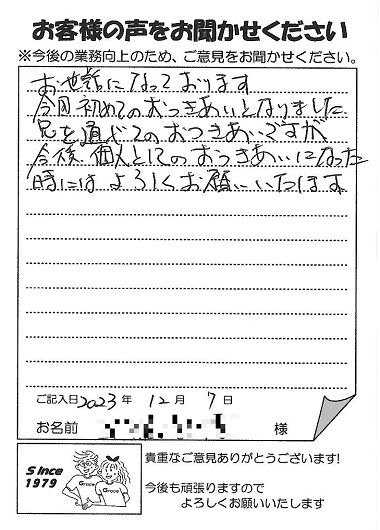 お客様の声をお聞かせください
※今後の業務向上のため、ご意見をお聞かせください。
お世話になっております
今回初めてのおつきあいとなりました
兄を通じてのおつきあいですが
今後個人としてのおつきあいになった
時にはよろしくお願いいたします
ご記入日2023年 12月 7日
お名前 様
Since
1979
Grace
Grace
貴重なご意見ありがとうございます!
今後も頑張りますので
よろしくお願いいたします